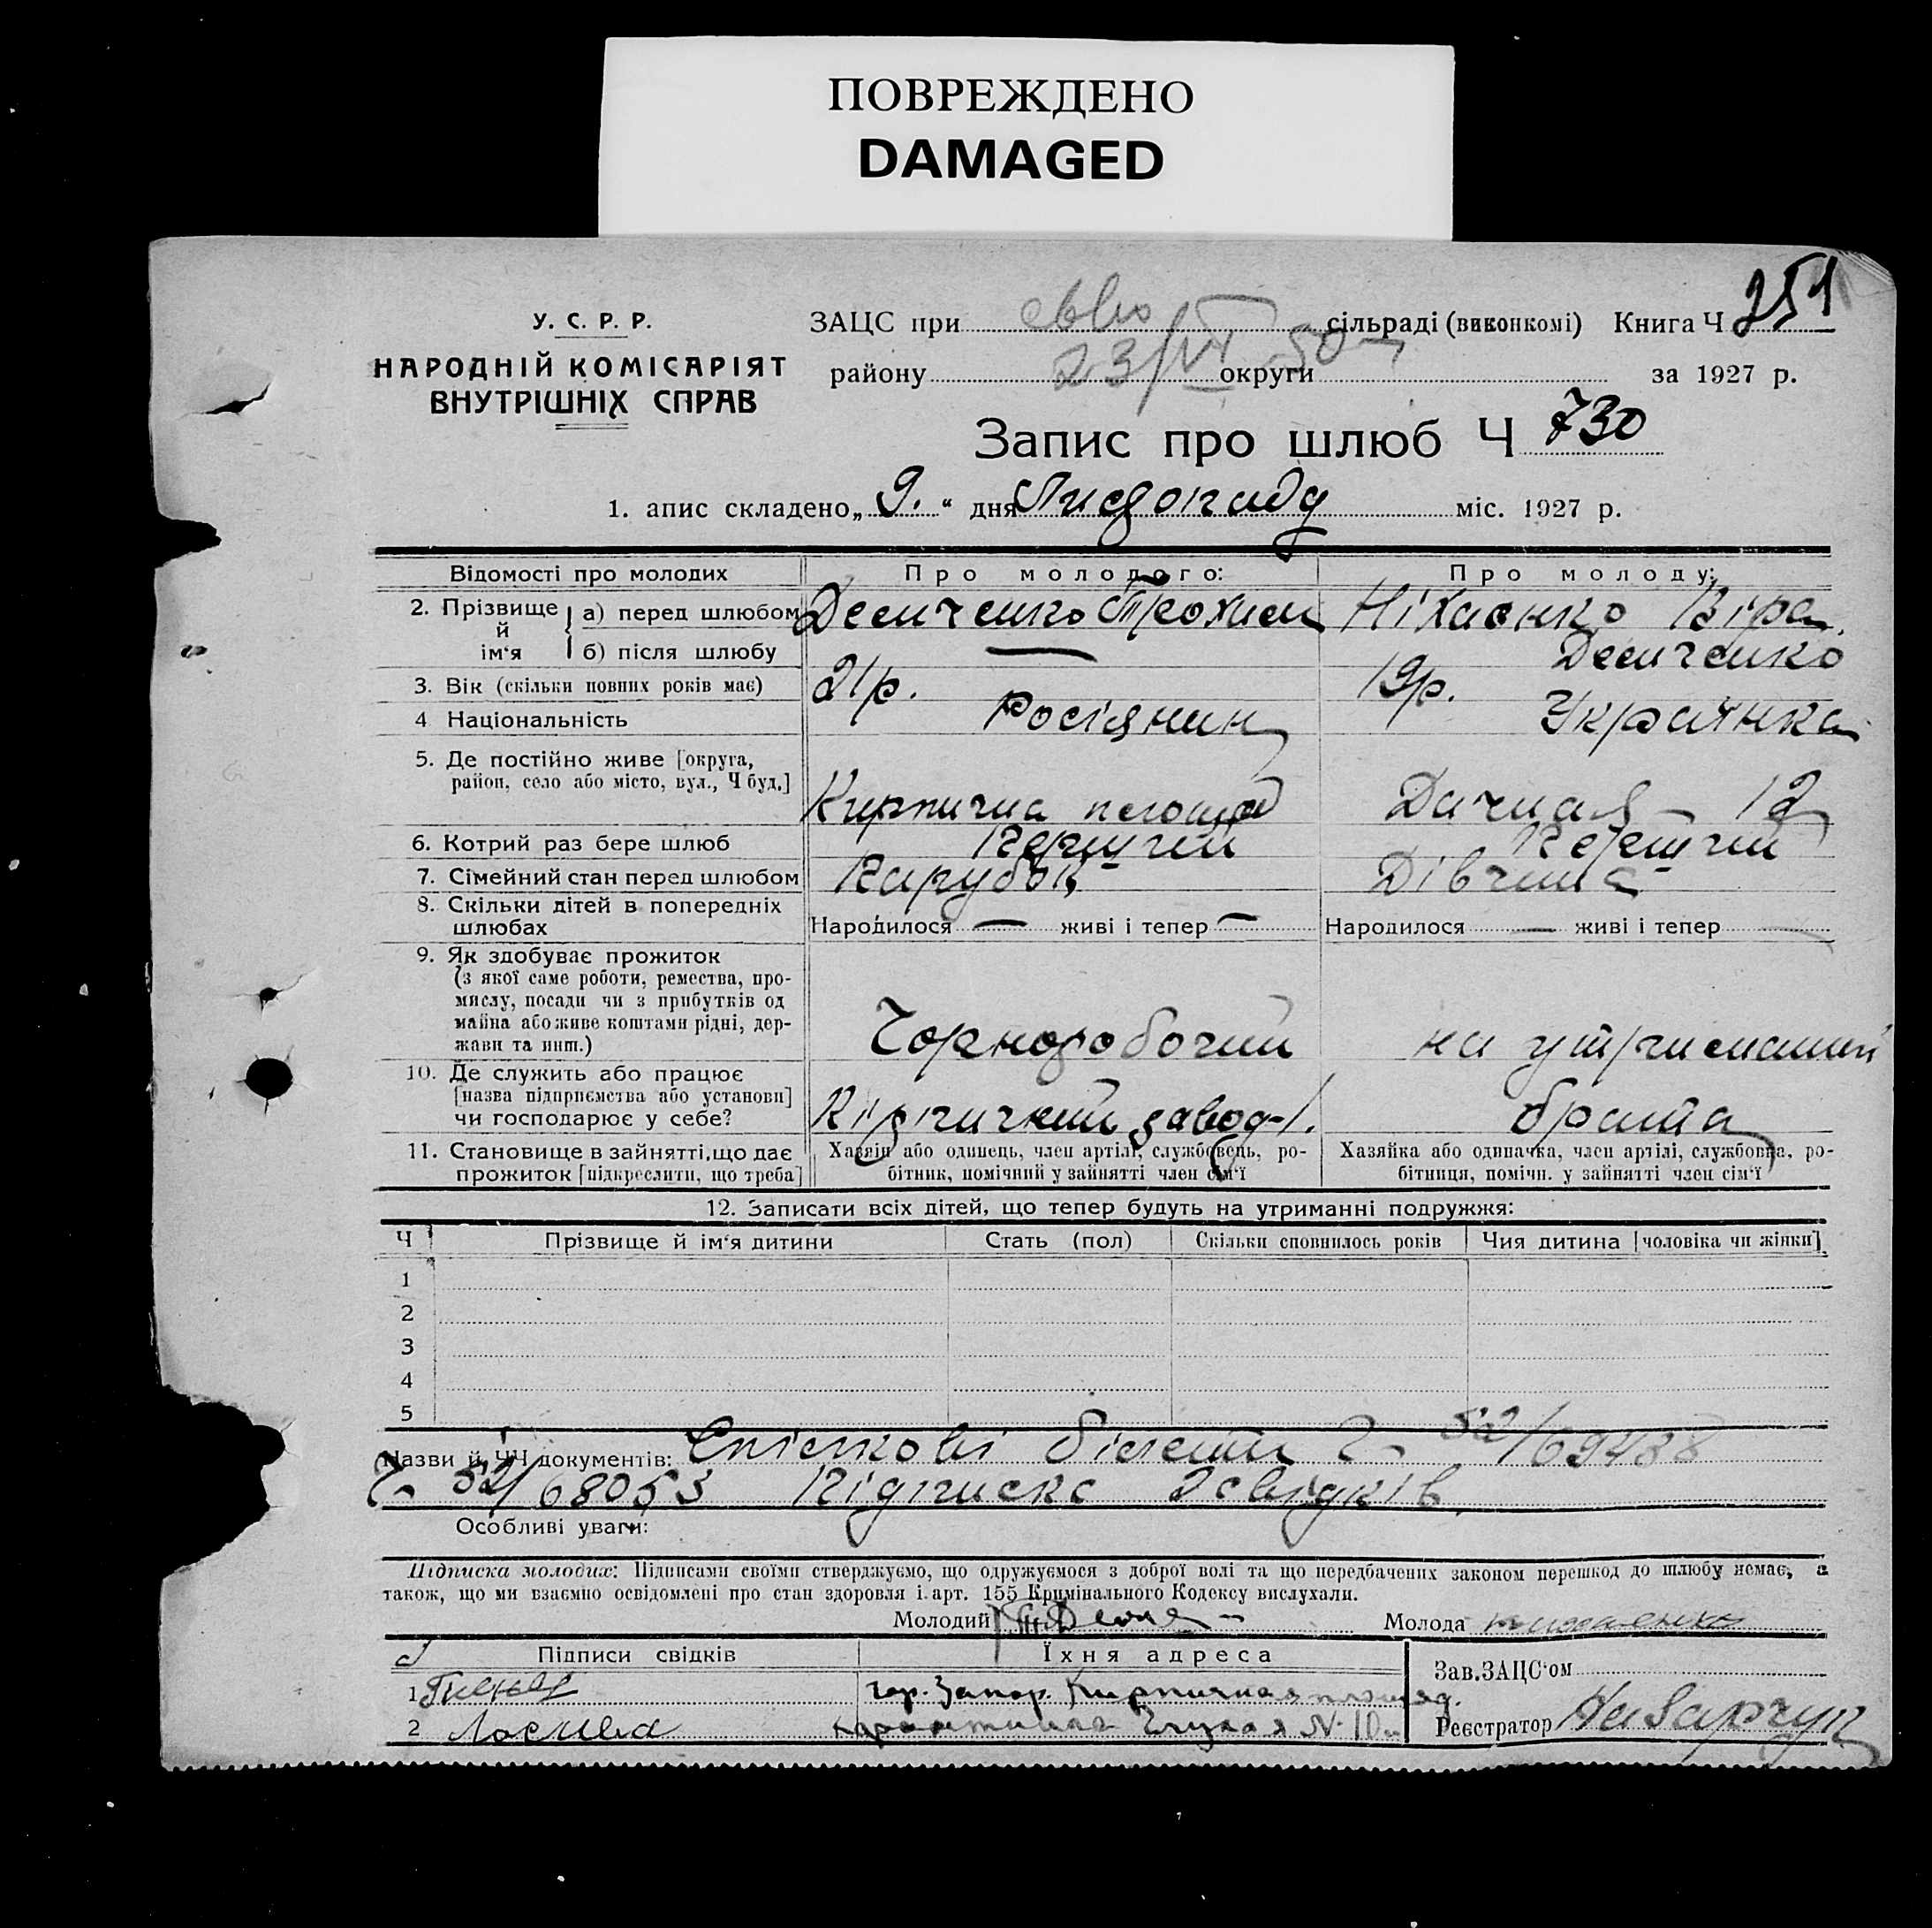 ПОВРЕЖДЕНО
DAMAGED
У. С. Р. Р.
НАРОДНІЙ КОМІСАРІЯТ
ВНУТРІШНІХ СПРАВ
ЗАЦС при сільраді (виконкомі) Книга Ч 251
району 23/VI округи 50 за 1927 р.
Запис про шлюб Ч 730
1. апис складено „ 9. “ дня Листопаду міс. 1927 р.
Відомості про молодих Про молодого: Про молоду:
2. Прізвище й ім‘я а) перед шлюбом Демченко Трохим Ніхаенко Віра
б) після шлюбу — Демченко
3. Вік (скільки повних років має) 21 р. 19 р.
4 Національність Росіянин Українка
5. Де постійно живе [округа,
район, село або місто, вул., Ч буд.] Кирпична площад Дачная – 12
6. Котрий раз бере шлюб Перший Перший
7. Сімейний стан перед шлюбом Парубок Дівчина
8. Скільки дітей в попередніх
шлюбах Народилося — живі і тепер — Народилося — живі і тепер
9. Як здобуває прожиток
(з якої саме роботи, ремества, про-
мислу, посади чи з прибутків од
майна або живе коштами рідні, дер-
жави та инш.) Чорноробочий на утриманні
10. Де служить або працює
[назва підприємства або установи]
чи господарює у себе? Кірпичний завод-1. брата
11. Становище в зайнятті, що дає
прожиток [підкреслити, що треба]
Хазяїн або одинець, член артілі, службовець, ро-
бітник, помічний у зайнятті член сім‘ї
Хазяйка або одиначка, член артілі, службовка, ро-
бітниця, помічн. у зайнятті член сім‘ї
12. Записати всіх дітей, що тепер будуть на утриманні подружжя:
Ч Прізвище й ім‘я дитини Стать (пол) Скільки сповнилось років Чия дитина [чоловіка чи жінки]
1
2
3
4
5
Назви й ЧЧ документів: Спілкові білети Ч- 52/69438
Ч- 52/68053 Підписка свідків
Особливі уваги:
Підписка молодих: Підписами своїми стверджуємо, що одружуємося з доброї волі та що передбачених законом перешкод до шлюбу немає, а
також, що ми взаємно освідомлені про стан здоровля і арт. 155 Кримінального Кодексу вислухали.
Молодий Молода
Підписи свідків Їхня адреса Зав. ЗАЦС‘ом
1 гор. Запор. Кирпичная площад.
2 № 10 Реєстратор